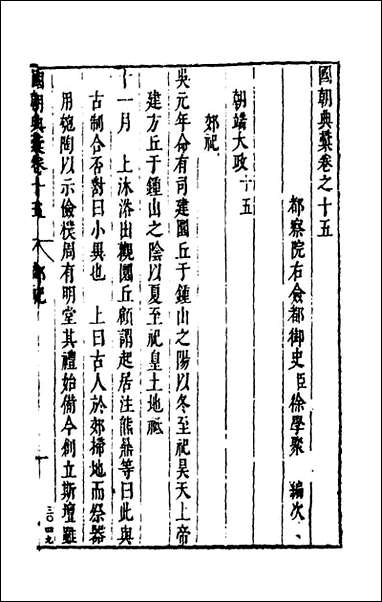 國朝典彙卷之十五
都察院右僉都御史臣徐學聚 編次
朝端大政十五
郊祀
吳元年命有司建圜丘于鍾山之陽以冬至祀昊天上帝
建方丘于鍾山之陰以夏至祀皇土地祗
十一月 上沐浴出觀圜丘顧謂起居注熊鼎等曰此與
古制合否對曰小異也 上曰古人於郊掃地而祭器
用匏陶以示儉樸周有明堂其禮始備今創立斯壇雖
國朝典彙卷十五 郊祀 一
三〇四九